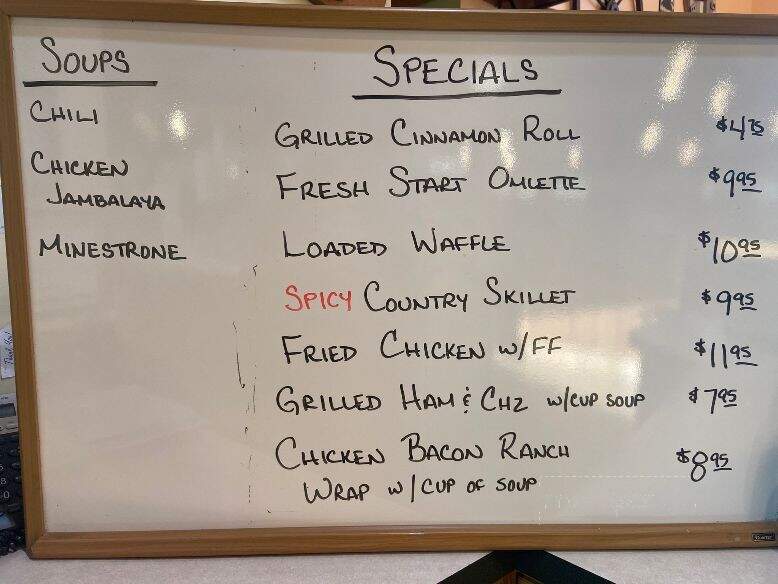 SOUPS
CHILI
CHICKEN
JAMBALAYA
MINESTRONE
SPECIALS
GRILLED CINNAMON ROLL $4.75
FRESH START OMLETTE $9.95
LOADED WAFFLE $10.95
SPICY COUNTRY SKILLET $9.95
FRIED CHICKEN W/FF $11.95
GRILLED HAM & CHZ W/CUP SOUP $7.95
CHICKEN BACON RANCH $8.95
WRAP W/CUP OF SOUP